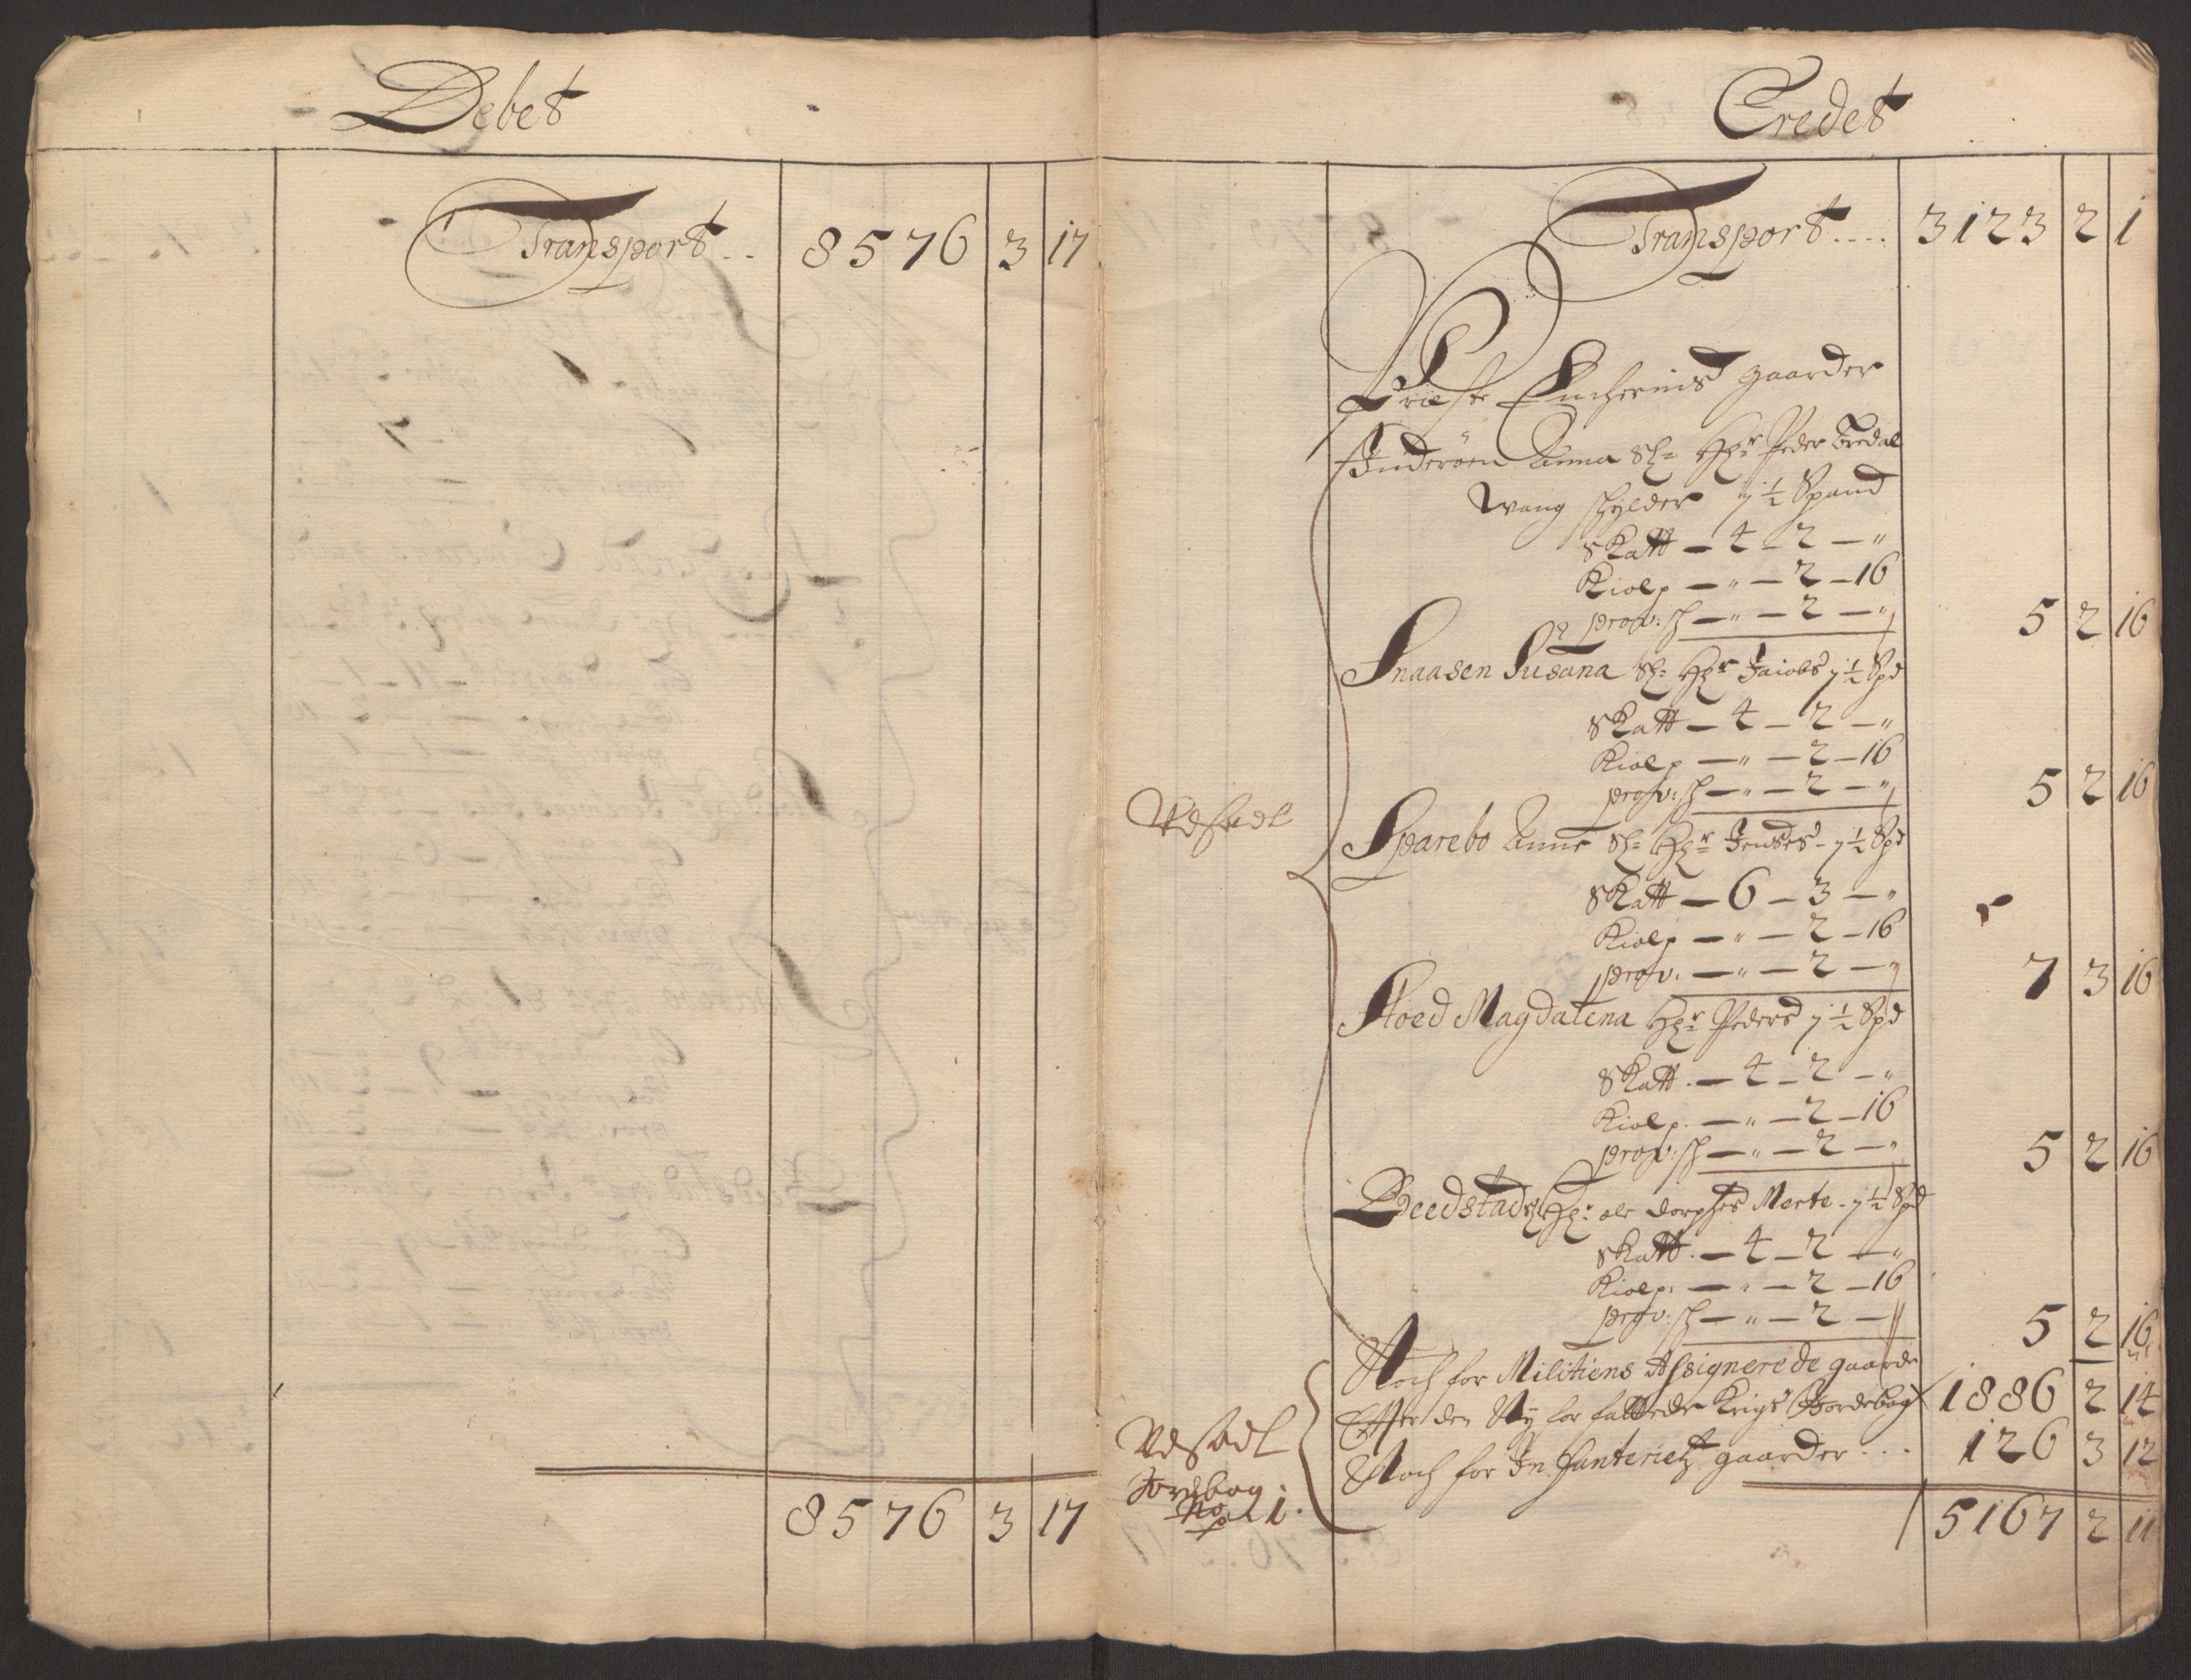 Debet
Transport .. 8576 3 17
8576 3 17
Credet
Transport .... 3123 2 1
Præste Enchernis gaarder
Inderöen Anna Sl: Hr: Peder Bredal
Wang schylder 7 1/2 Spand
Skatt — 4 — 2 — "
Kiolp — " — 2 — 16
prov: sch — " — 2 — " 5 2 16
Snaasen Susana Sl: Hr: Jaiobs 7 1/2 Spd
Skatt — 4 — 2 — "
Kiolp — " — 2 — 16
prov: sch — " — 2 — " 5 2 16
Udsædl
Sparebo Anne Sl: Hr: Jenses - 7 1/2 Spd
Skatt — 6 — 3 — "
Kiolp — " — 2 — 16
prov. — " — 2 — " 7 3 16
Stoed Magdalena Hr: Peders 7 1/2 Spd
Skatt. — 4 — 2 — "
Kiolp. — " — 2 — 16
prov: sch — " — 2 — " 5 2 16
Beedstad Sl Hr: ole dorphes Merte - 7 1/2 Spd
Skatt. — 4 — 2 — "
Kiolp. — " — 2 — 16
prov: sch — " — 2 — " 5 2 16
Noch for Militiens Assignerede gaarde
Efter den Ny for fattede Krigs Jordebog 1886 2 14
Noch for Infanteriets gaarder ... 126 3 12
Udsædl
Jordbog
No 1.
5167 2 11